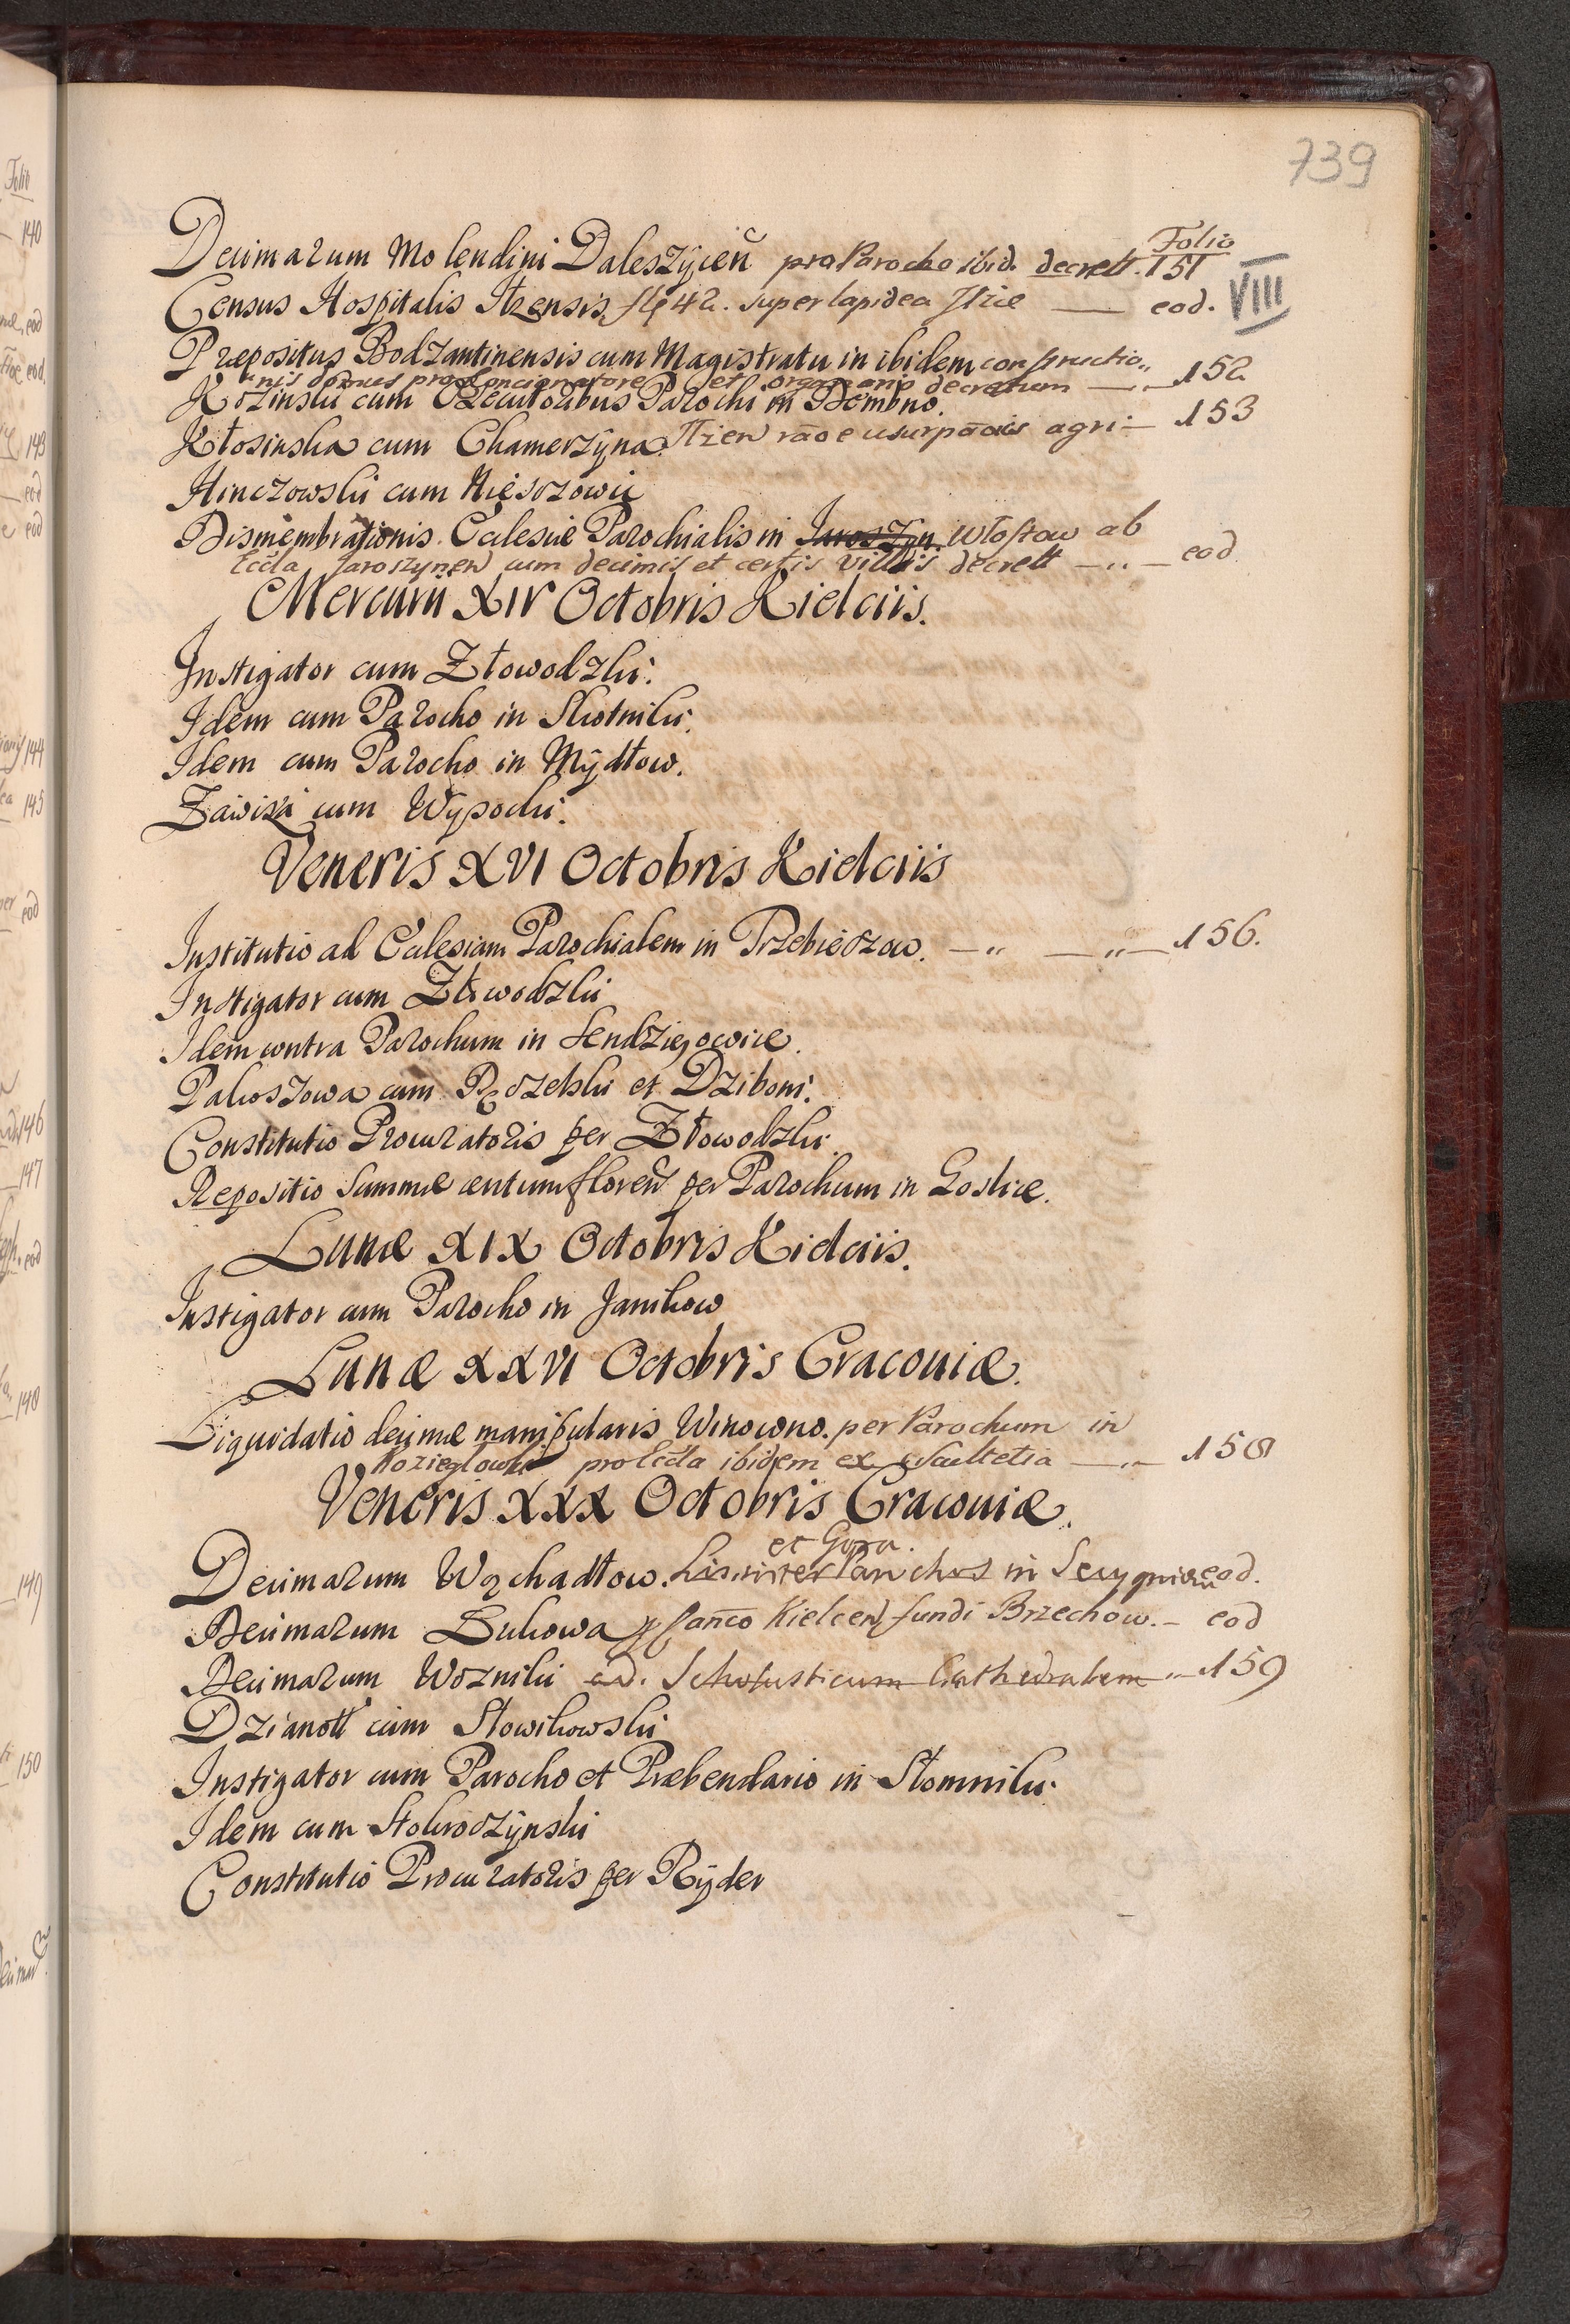 739
Folio
Decimarum Molendini Daleszÿcień pro Parocho ibid. decrett. 151
VIII
Census Hospitalis Ilzensis. fl. 42. super lapidea Ilzæ — eod.
Præpositus Bodzantinensis cum Magistratu in ibidem constructio„
nis domus pro Concionatore et organario decretum —„— 152
Kozinski cum Executoribus Parochi in Dembno.
Kłosinska cum Chamerzÿna. Ilzen raōe usurpaōis agri — 153
Hinczowski cum
Dismembrationis Ecclesiæ Parochialis in Jaroszÿn. Włostow ab
Eccla Jaroszynen cum decimis et certis villis decrett —„— eod.
Mercurii XIV Octobris Kielciis.
Instigator cum Złowodzki.
Idem cum Parocho in Skotniki.
Idem cum Parocho in Mÿdłow.
Zawisza cum Wÿpocki.
Veneris XVI Octobris Kielciis
Institutio ad Ecclesiam Parochialem in Trzebieszow. —„ —„— 156.
Instigator cum Złowodzki
Idem contra Parochum in Sendziejowice.
Pakoszowa cum et Dziboni.
Constitutio Procuratoris per Złowodzki.
Repositio Summæ centum floreń per Parochum in Goslice.
Lunæ XIX Octobris Kielciis.
Instigator cum Parocho in Janikow
Lunæ XXVI Octobris Cracoviæ.
Liquidatio decimæ manipularis Winowno. per Parochum in
Koziegłowki pro Eccla ibidem ex Scultetia —„— 158
Veneris XXX Octobris Cracoviæ.
et Gora.
Decimarum Wochadłow. Lis. inter Parochos in eod.
Decimarum Sukowa Kielcen fundi Brzechow. — eod
Decimarum Wozniki ad. Scholasticum Cathedralem „— 159
Dzianott cum Słowikowski
Instigator cum Parocho et Præbendario in Słomniki.
Idem cum Stokroczÿnski
Constitutio Procuratoris per Rÿder